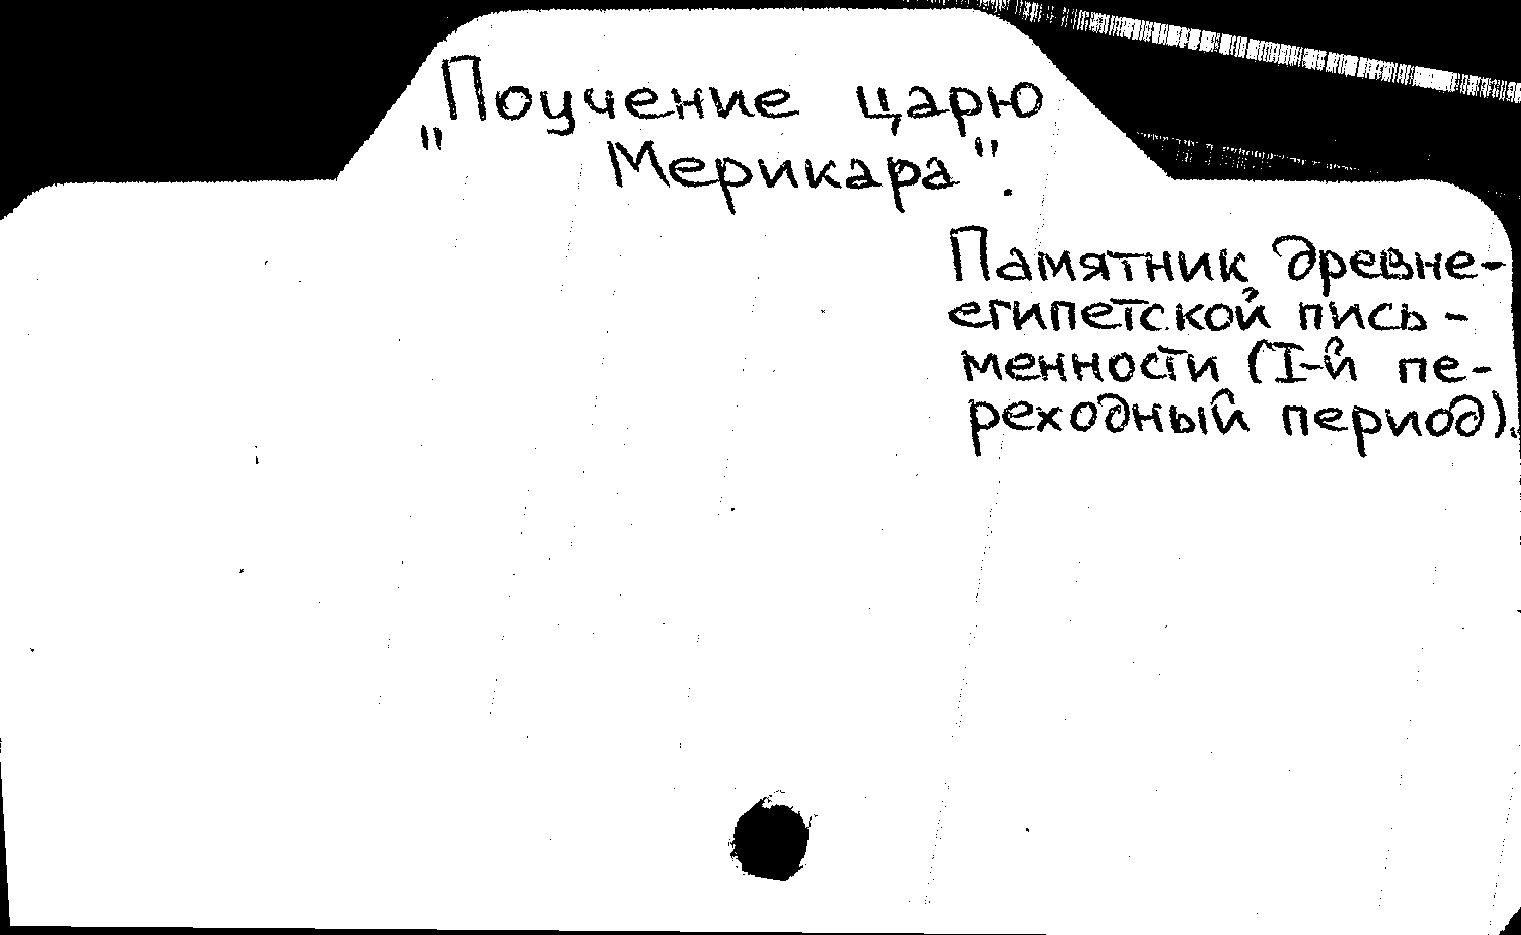 "Поучение царю
Мерикара".
Памятник древне-
египетской пись-
менности (I-й пе-
реходный период).